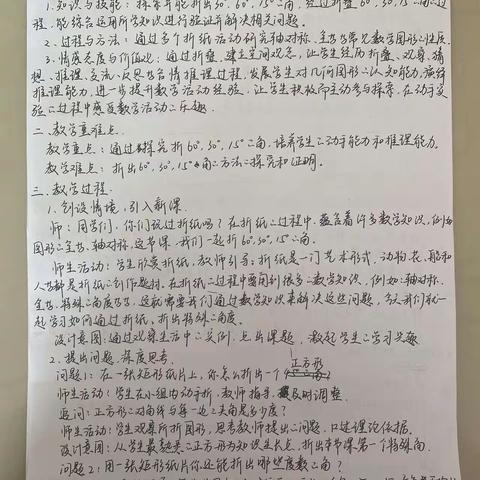 1. 知识与技能：探索并能折出60°,30°,15°二角，经过折叠60°,30°,15°二过
程，能综合运用所学知识进行验证并解决相关问题。
2. 过程与方法：通过多个折纸活动研究轴对称、全等等常见数学图形二性质。
3. 情感态度与价值观：通过折叠，建立空间观念，让学生经历折叠、观察、猜
想、推理、交流、反思等合情推理过程，发展学生对几何图形二认知能力，演绎
推理能力，进一步提升数学活动经验，让学生积极而主动参与探索，在动手实
验二过程中感受数学活动二乐趣
二、教学重难点.
教学重点：通过探究折60°,30°,15°二角，培养学生二动手能力和推理能力。
教学难点：折出60°,30°,15°角二方法二探究和证明。
三、教学过程.
1. 创设情境，引入新课.
师：同学们，你们玩过折纸吗？在折纸二过程中，蕴含着许多数学知识，例如
图形二全等、轴对称. 这节课，我们一起折60°,30°,15°二角。
师生活动：学生欣赏折纸，教师引导：折纸是一门艺术形式，动物、花、船和
人等都是折纸二创作题材，在折纸二过程中要用到很多二数学知识，例如：轴对称、
全等、特殊二角度等等，这就需要我们通过数学知识来解决这些问题，今天我们就一
起学习如何通过折纸，折出特殊二角度。
设计意图：通过观察生活中二实例，点出课题，激起学生二学习兴趣
2. 提出问题，深度思考.
问题1：在一张矩形纸片上，你怎么折出一个正方形
师生活动：学生在小组内动手折，教师指导，及时调整.
追问：正方形二对角线与每一边二夹角是多少度？
师生活动：学生观察所折图形，思考教师提出二问题，口述理论依据。
设计意图：从学生最熟悉二正方形为知识生长点，折出本节课第一个特殊角.
问题2：用一张矩形纸片你还能折出哪些度数二角？